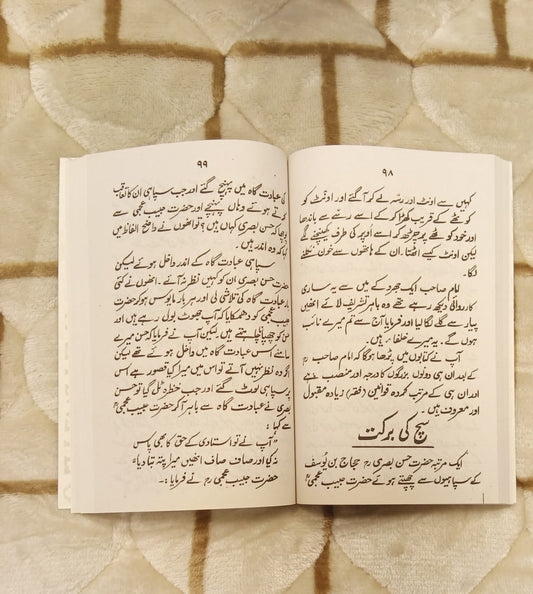 ۹۸
کہیں سے اونٹ اور رسّہ لے کر آ گئے اور اونٹ کو
کوٹھے کے قریب کھڑا کر کے اسے رسّے سے باندھا
اور خود کوٹھے پر چڑھ کر اسے اُوپر کی طرف کھینچنے لگے
لیکن اونٹ کیسے اٹھتا۔ ان کے ہاتھوں سے خون نکلنے
لگا۔
امام صاحب ایک حجرے میں سے یہ ساری
کارروائی دیکھ رہے تھے وہ باہر تشریف لائے انھیں
پیار سے گلے لگا لیا اور فرمایا آج سے تم میرے نائب
ہوں گے۔ یہ میرے خلفاء ہیں۔
آپ نے کتابوں میں پڑھا ہو گا کہ امام صاحب رح
کے بعد ان ہی دونوں بزرگوں کا درجہ اور منصب ہے
اور ان ہی کے مرتب کردہ قوانین (فقہ) زیادہ مقبول
اور معروف ہیں۔
سچ کی برکت
ایک مرتبہ حضرت حسن بصری رح حجاج بن یُوسف
کے سپاہیوں سے چھپتے ہوئے حضرت حبیب عجمی رح
۹۹
کی عبادت گاہ میں پہنچ گئے اور جب سپاہی ان کا تعاقب
کرتے ہوئے وہاں پہنچے اور حضرت حبیب عجمی سے
پوچھا کہ حسن بصری کہاں ہیں؟ تو انھوں نے واضح الفاظ میں
کہا کہ وہ اندر ہیں۔
سپاہی عبادت گاہ کے اندر داخل ہوئے لیکن
حضرت حسن بصری ان کو کہیں نظر نہ آئے۔ انھوں نے کئی
بار عبادت گاہ کی تلاشی لی اور ہر بار مایوس ہو کر حضرت
حبیب عجمی کو دھمکایا کہ آپ جھوٹ بول رہے ہیں اور
ان کو چھپانا چاہتے ہیں لیکن آپ نے فرمایا کہ حسن میرے
سامنے اس عبادت گاہ میں داخل ہوئے تھے لیکن
اگر وہ نظر نہیں آتے تو اس میں میرا کیا قصور ہے اس
پر سپاہی لوٹ گئے اور جب خطرہ ٹل گیا تو حسن
بصری نے عبادت گاہ سے باہر آ کر حضرت حبیب عجمی رح
سے کہا :
"آپ نے تو استادی کے حق کا بھی پاس
نہ کیا اور صاف صاف انھیں میرا پتہ بتا دیا"
حضرت حبیب عجمی رح نے فرمایا :۔